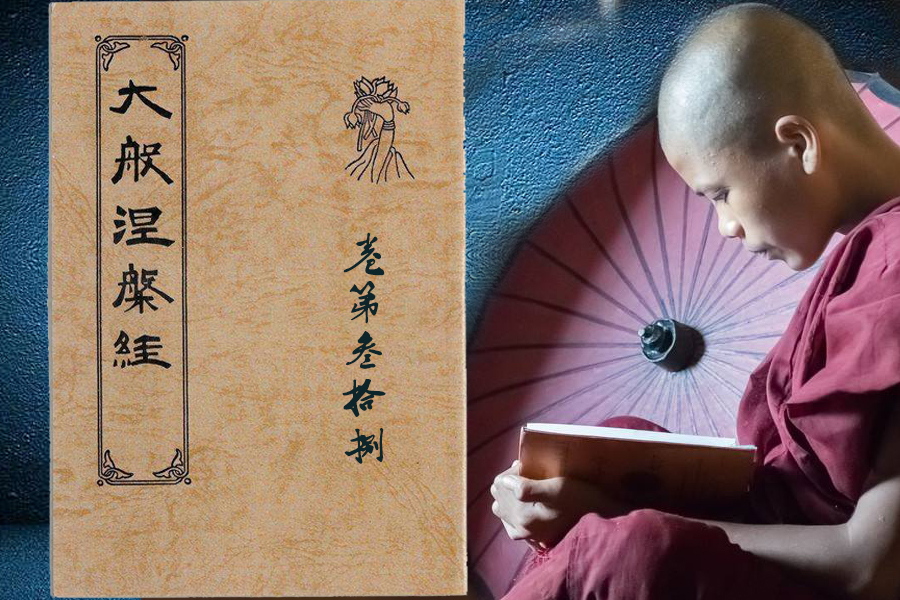 大般涅槃経
卷第叁拾捌